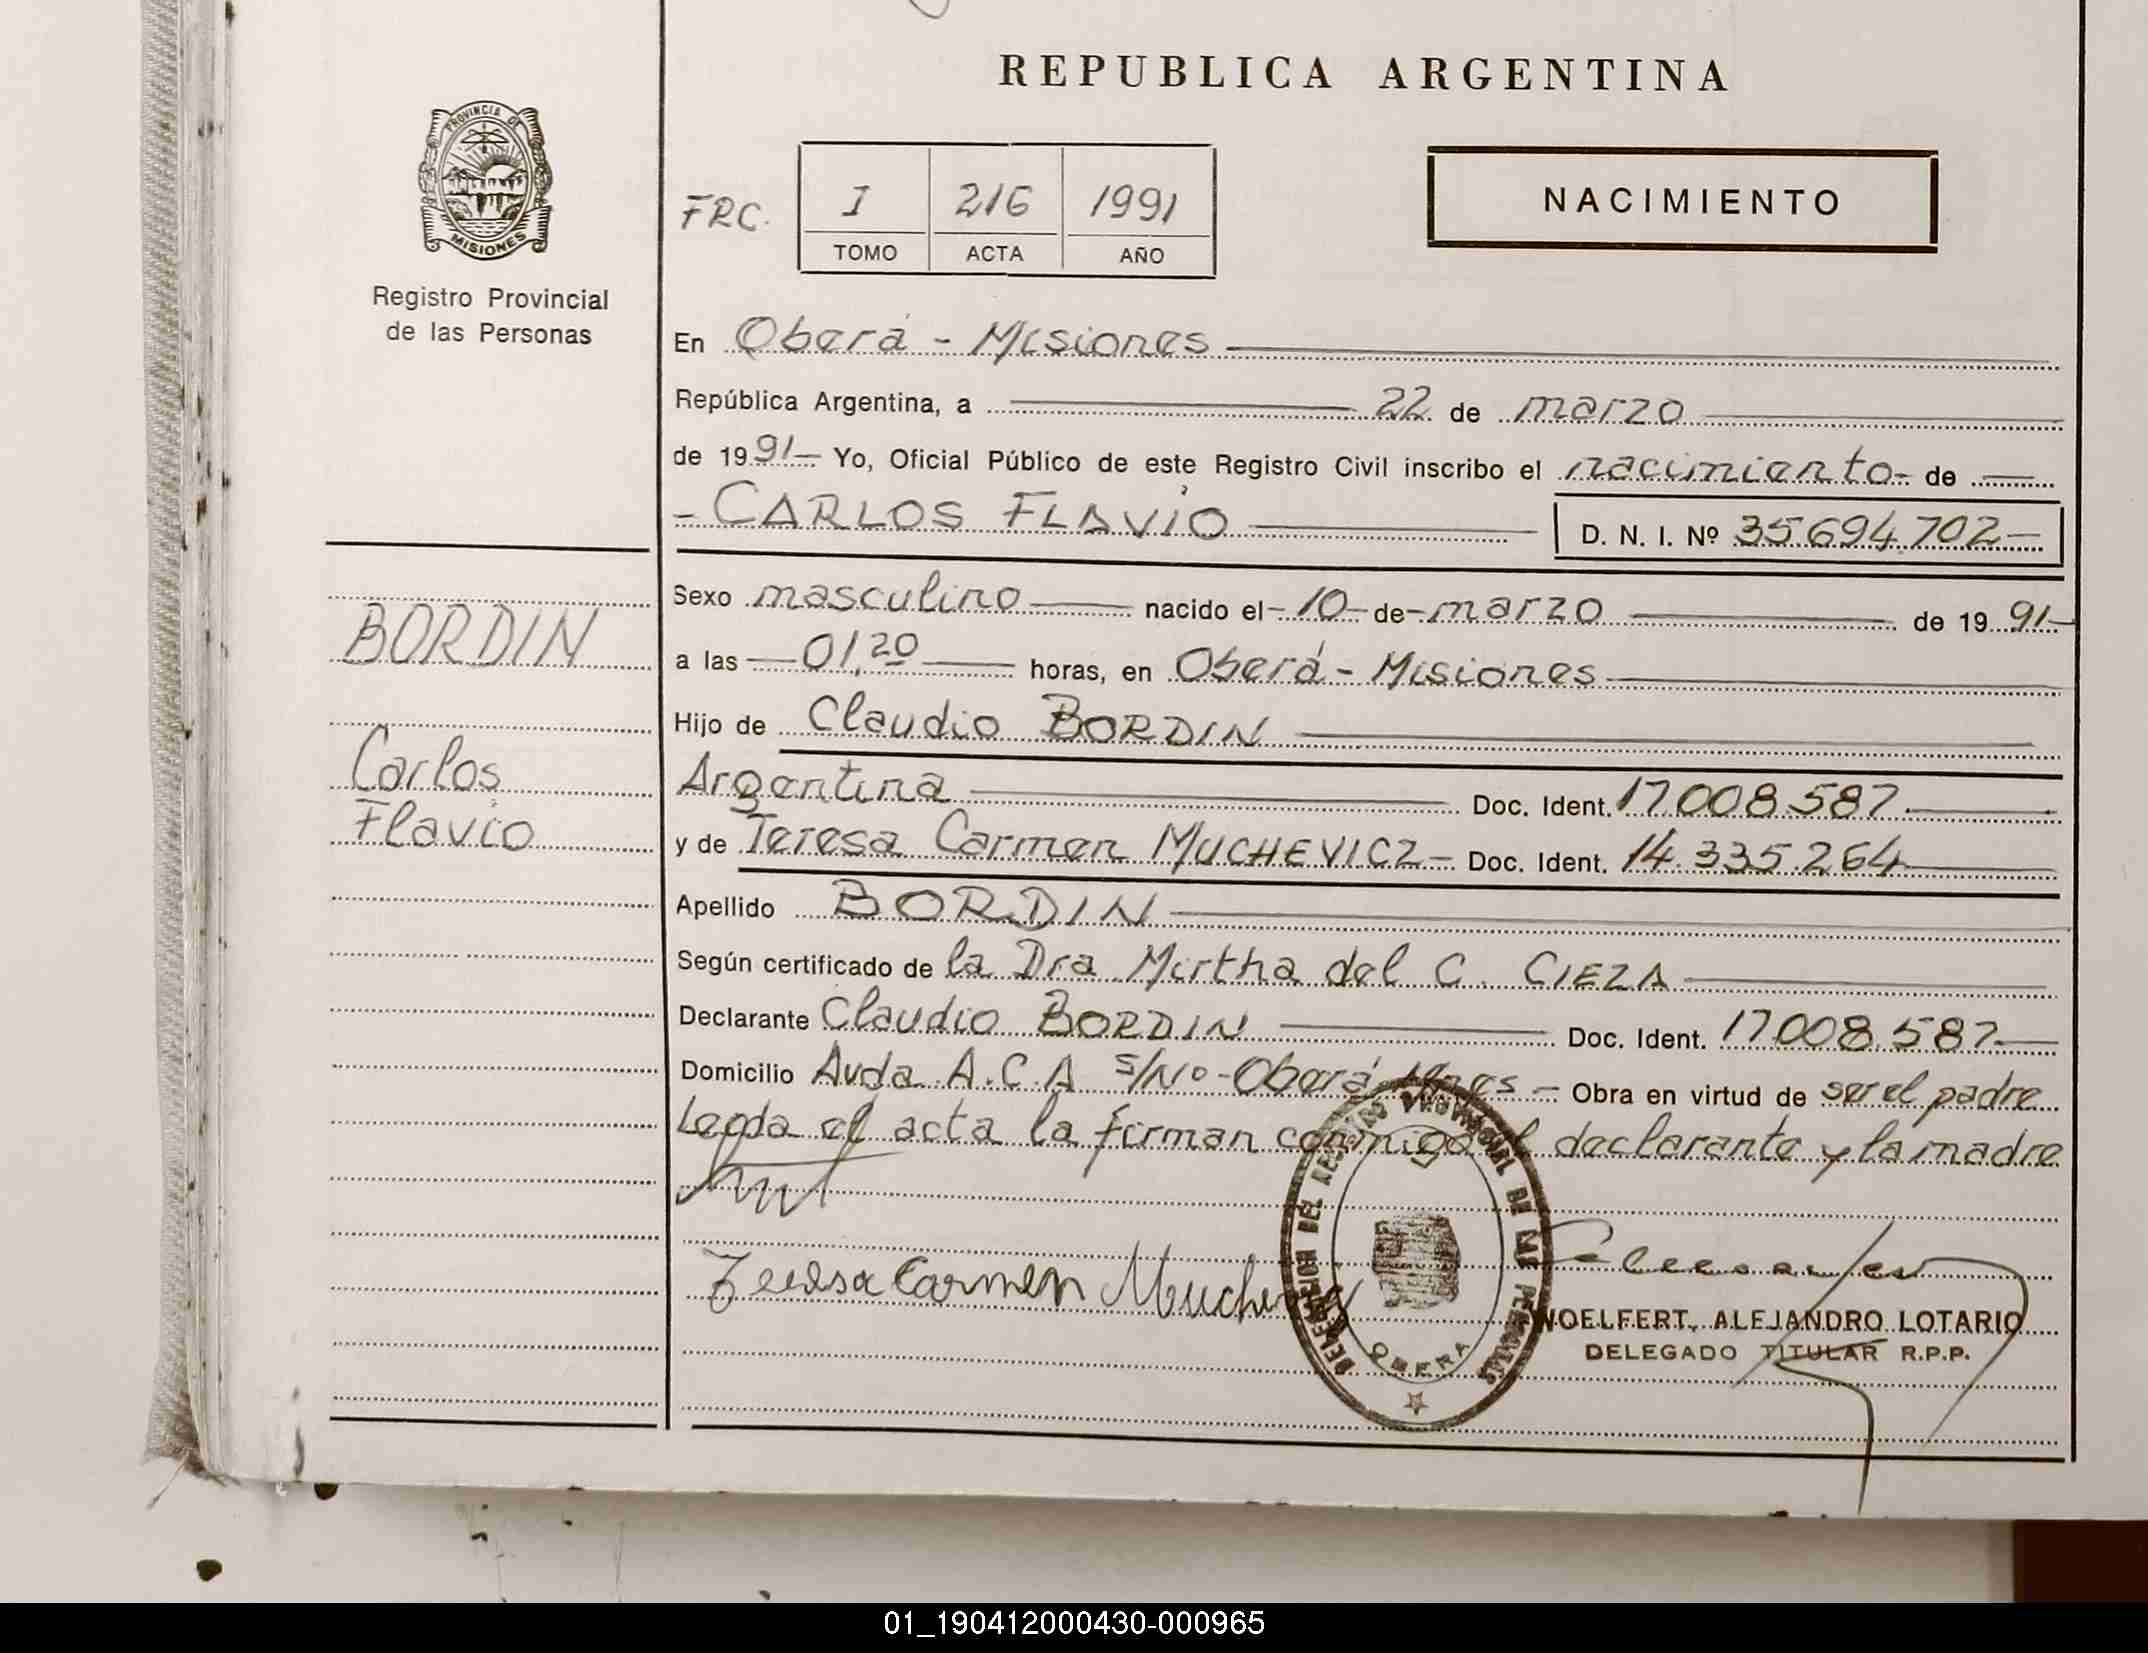 REPUBLICA ARGENTINA
PROVINCIA DE
MISIONES
Registro Provincial
de las Personas
FRC.
I 216 1991
TOMO ACTA AÑO
NACIMIENTO
En Oberá - Misiones
República Argentina, a 22 de marzo
de 1991 Yo, Oficial Público de este Registro Civil inscribo el nacimiento de
- CARLOS FLAVIO
D. N. I. Nº 35.694.702
BORDIN
Carlos
Flavio
Sexo masculino nacido el 10 de marzo de 1991
a las 01,20 horas, en Oberá - Misiones
Hijo de Claudio BORDIN
Argentina Doc. Ident. 17.008.587
y de Teresa Carmen MUCHEVICZ Doc. Ident. 14.335.264
Apellido BORDIN
Según certificado de la Dra Mirtha del C. CIEZA
Declarante Claudio BORDIN Doc. Ident. 17.008.587
Domicilio Avda A.C.A s/Nº - Oberá Mnes - Obra en virtud de ser el padre
Leida el acta la firman conmigo el declarante y la madre
DELEGACION DEL REGISTRO PROVINCIAL DE LAS PERSONAS
OBERA
Teresa Carmen
WOELFERT, ALEJANDRO LOTARIO
DELEGADO TITULAR R.P.P.
01_190412000430-000965